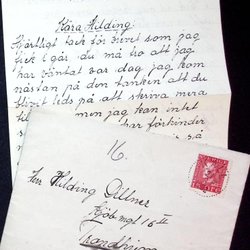 Kära Hilding:
Hjärtligt tack för brevet som jag
fick i går. du må tro att jag
har väntat var dag, jag kom
nästan på den tanken att du
blivit leds på att skriva mera
men jag kan intet
har förhinder
så
16.
Herr Hilding Dillner
Kjöbmgt 16 II
Trondhjem